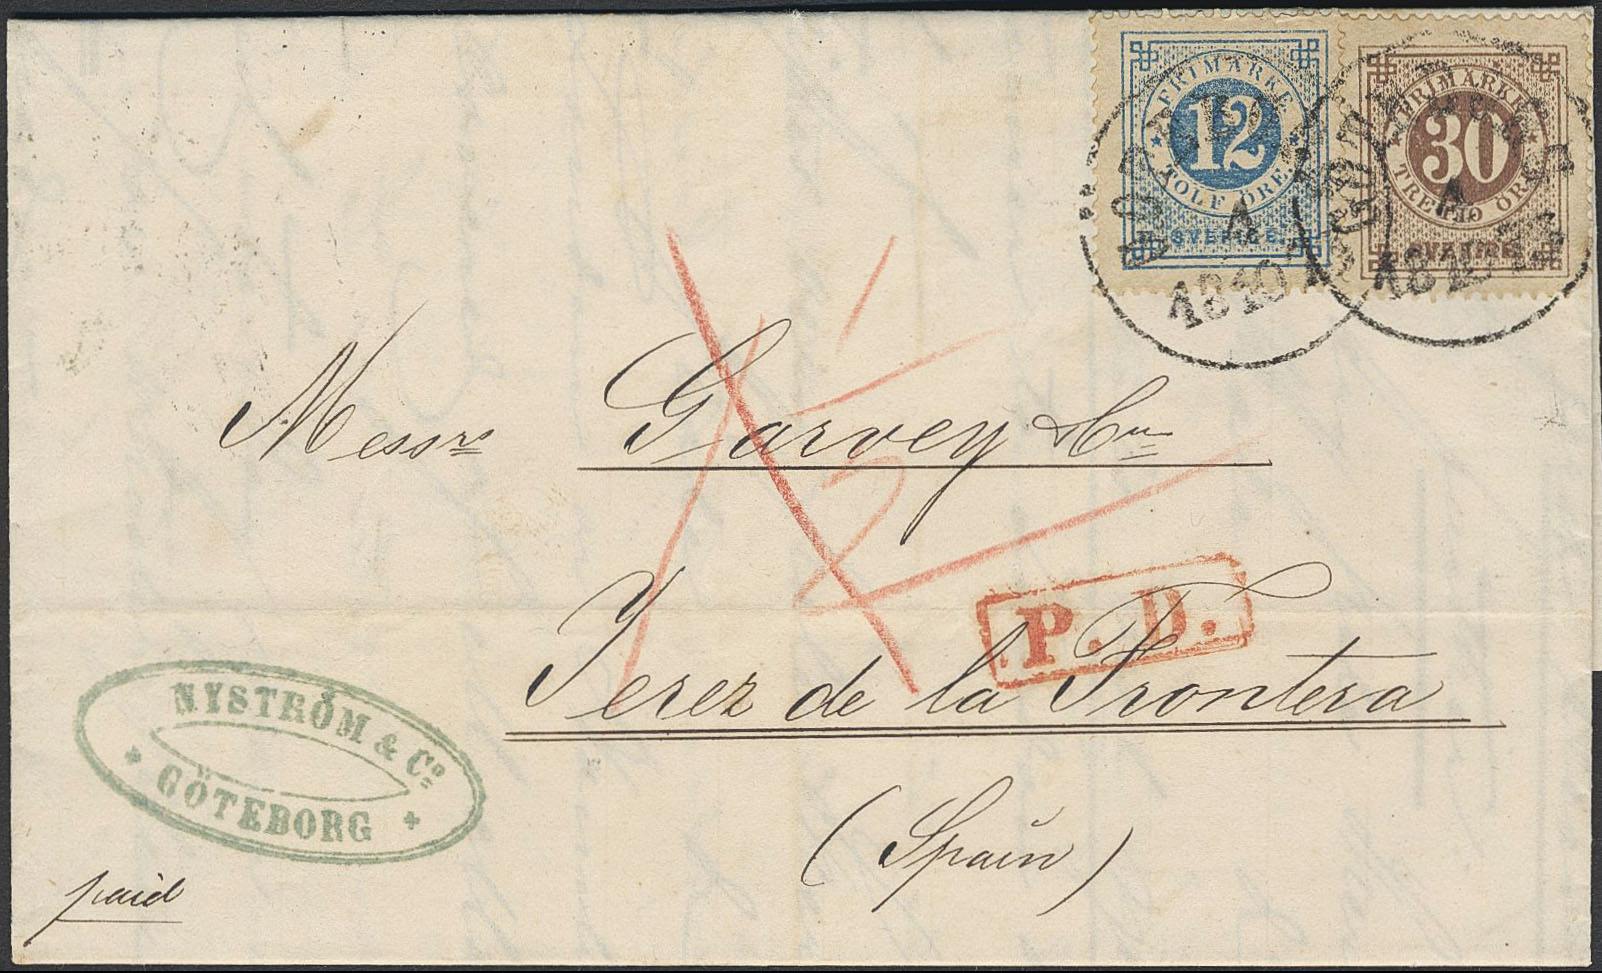 FRIMÄRKE
12
TOLF ÖRE.
SVERIGE.
FRIMÄRKE
30
TRETTIO ÖRE
GÖTEBORG
1
GÖTEBORG
1
Messrs Garvey & Cn
P. D.
Jerez de la Frontera
(Spain)
NYSTRÖM & Co
GÖTEBORG
paid